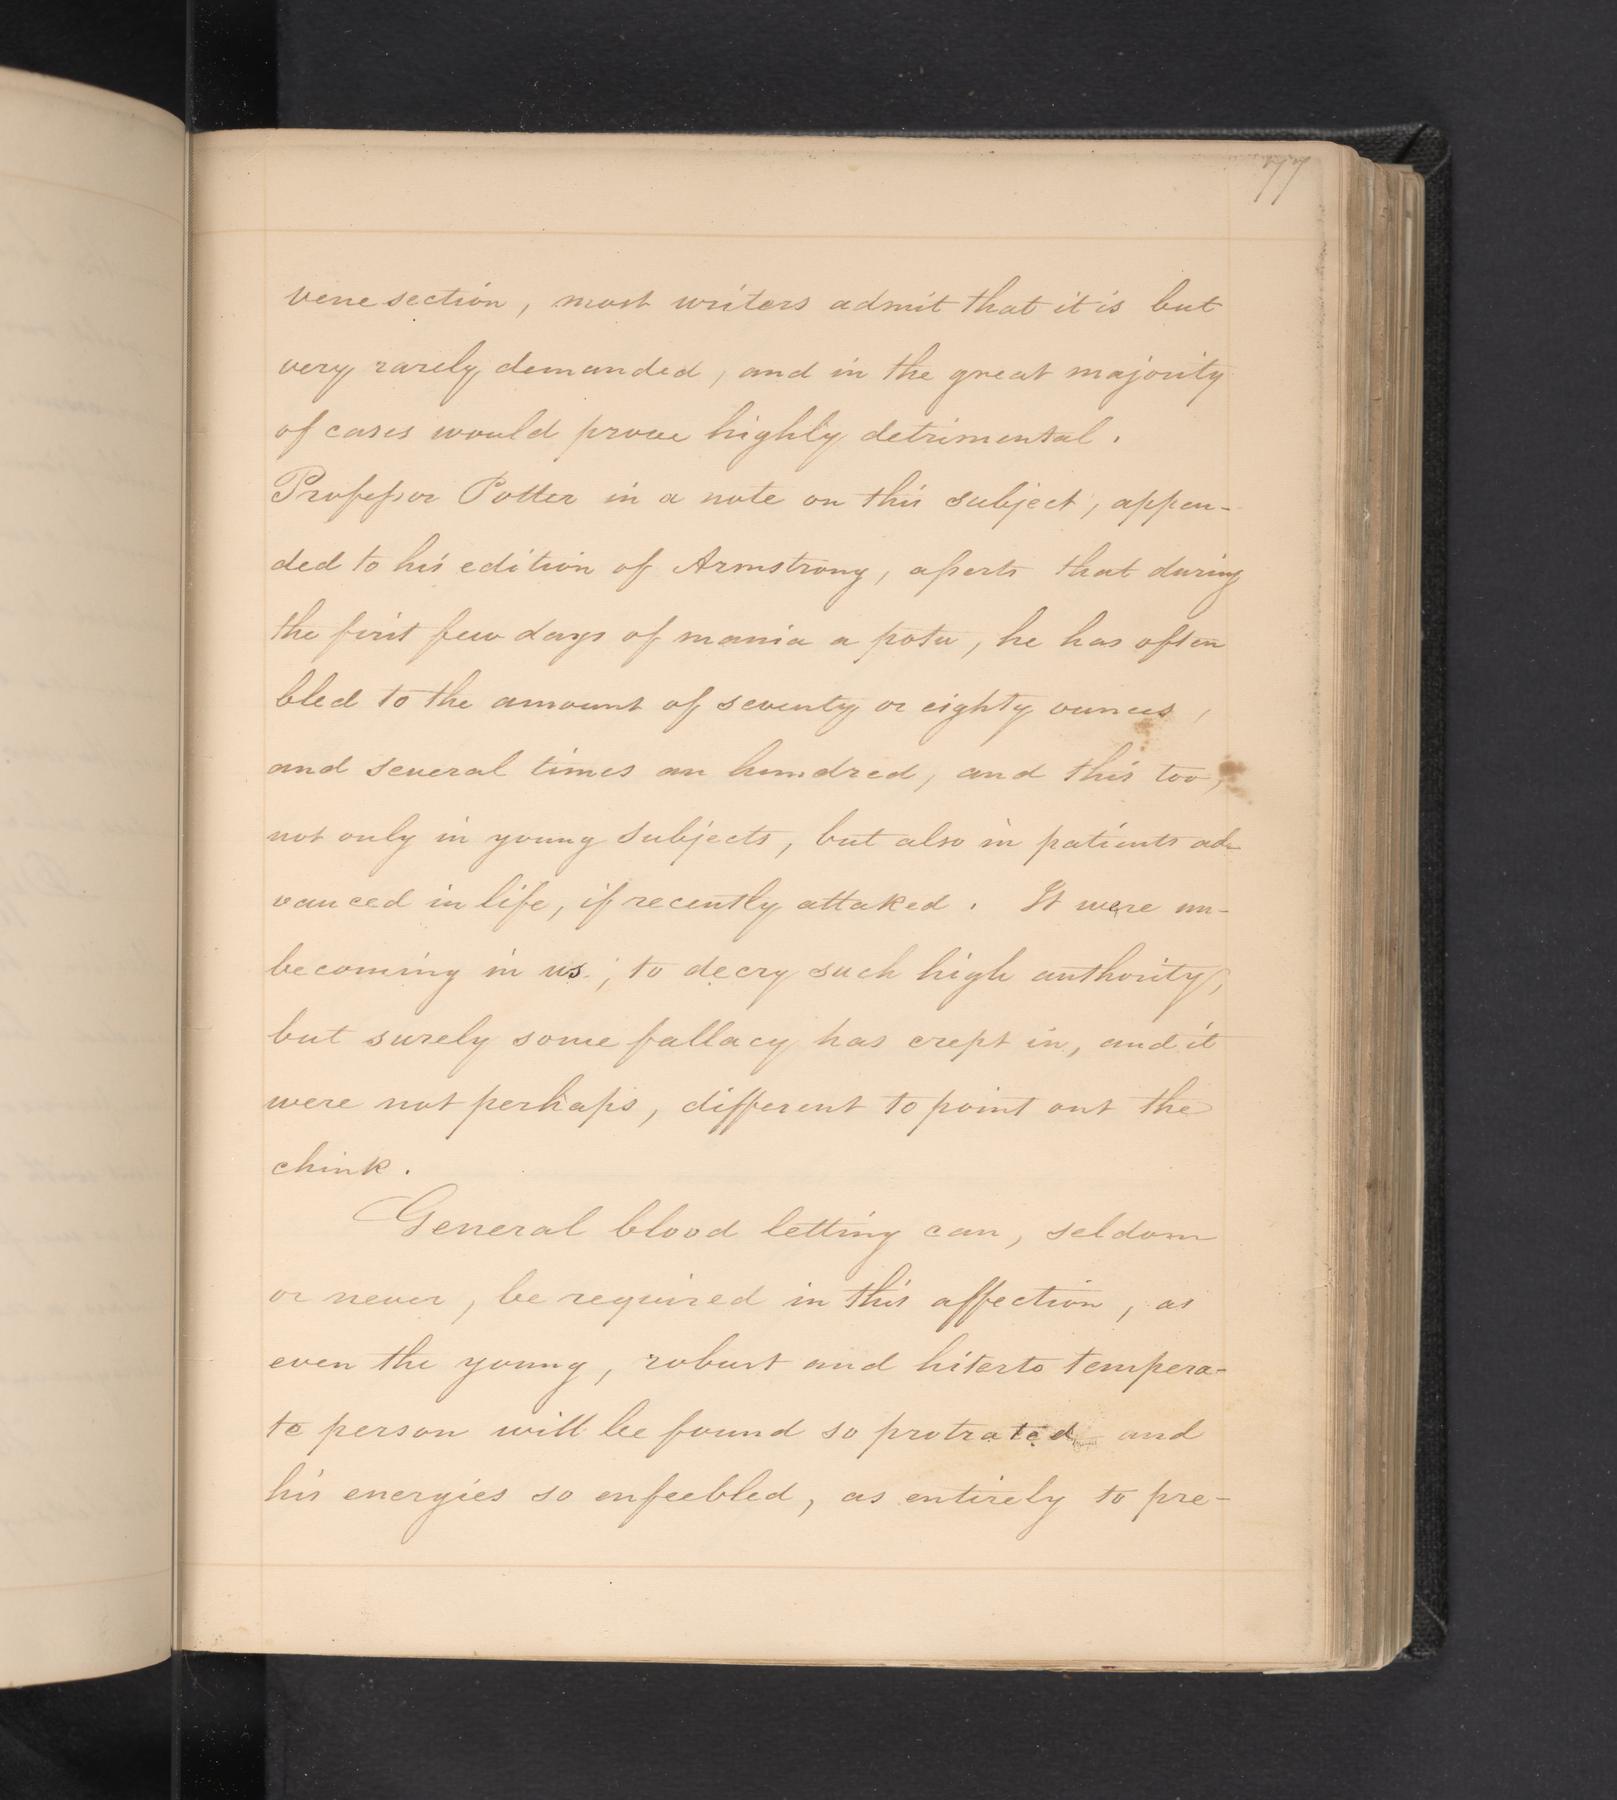 77
vene section, most writers admit that it is but
very rarely demanded, and in the great majority
of cases would prove highly detrimental.
Professor Potter in a note on this subject, appen-
ded to his edition of Armstrong, asserts that during
the first few days of mania a potu, he has often
bled to the amount of seventy or eighty ounces,
and several times an hundred, and this too,
not only in young subjects, but also in patients ad-
vanced in life, if recently attaked. It were un-
becoming in us, to decry such high authority,
but surely some fallacy has crept in, and it
were not perhaps, different to point out the
chink.
General blood letting can, seldom
or never, be required in this affection, as
even the young, robust and hiterto tempera-
te person will be found so protrated and
his energies so enfeebled, as entirely to pre-